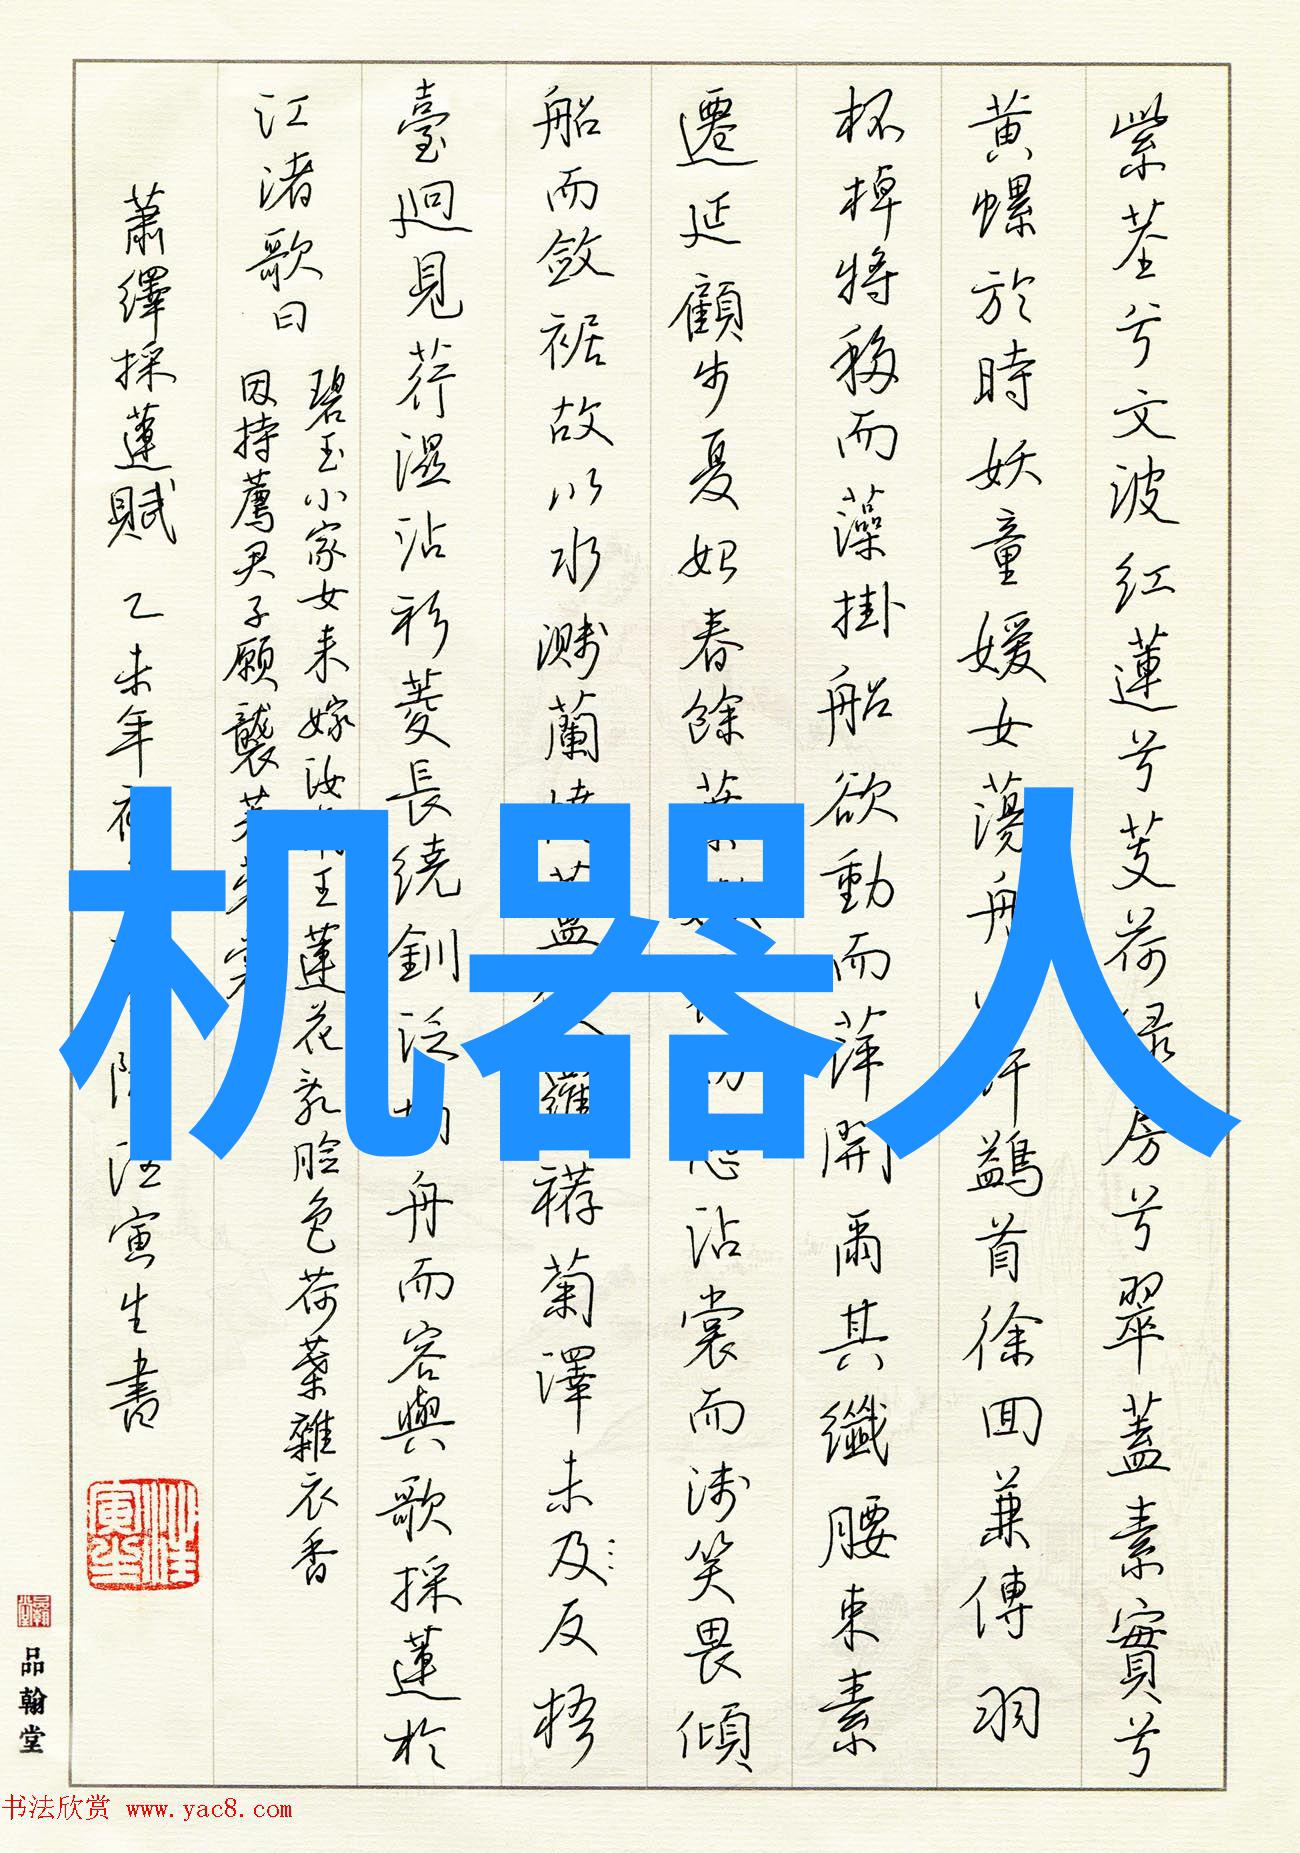 紫茎兮文波红蓮兮芰荷绿房兮翠蓋素實兮
黄螺於時妖童媛女蕩舟許鷁首徐囬兼傳羽
杯棹将移而藻掛船欲動而萍開爾其纖腰束素
遷延顧步夏始春餘葉恐沾裳而浅笑畏傾
船而斂裾故以水濺蘭橈羅褥菊澤未及反梧
臺迥見荇濕沾衫菱長繞釧泛舟而容與歌採蓮於
江渚歌曰
碧玉小家女来嫁汝南王蓮花乱臉色荷葉雜衣香
因持薦君子願襲芙蓉裳
蕭繹採蓮賦 乙未年汪寅生書
品翰堂
机器人
书法欣赏 www.yac8.com